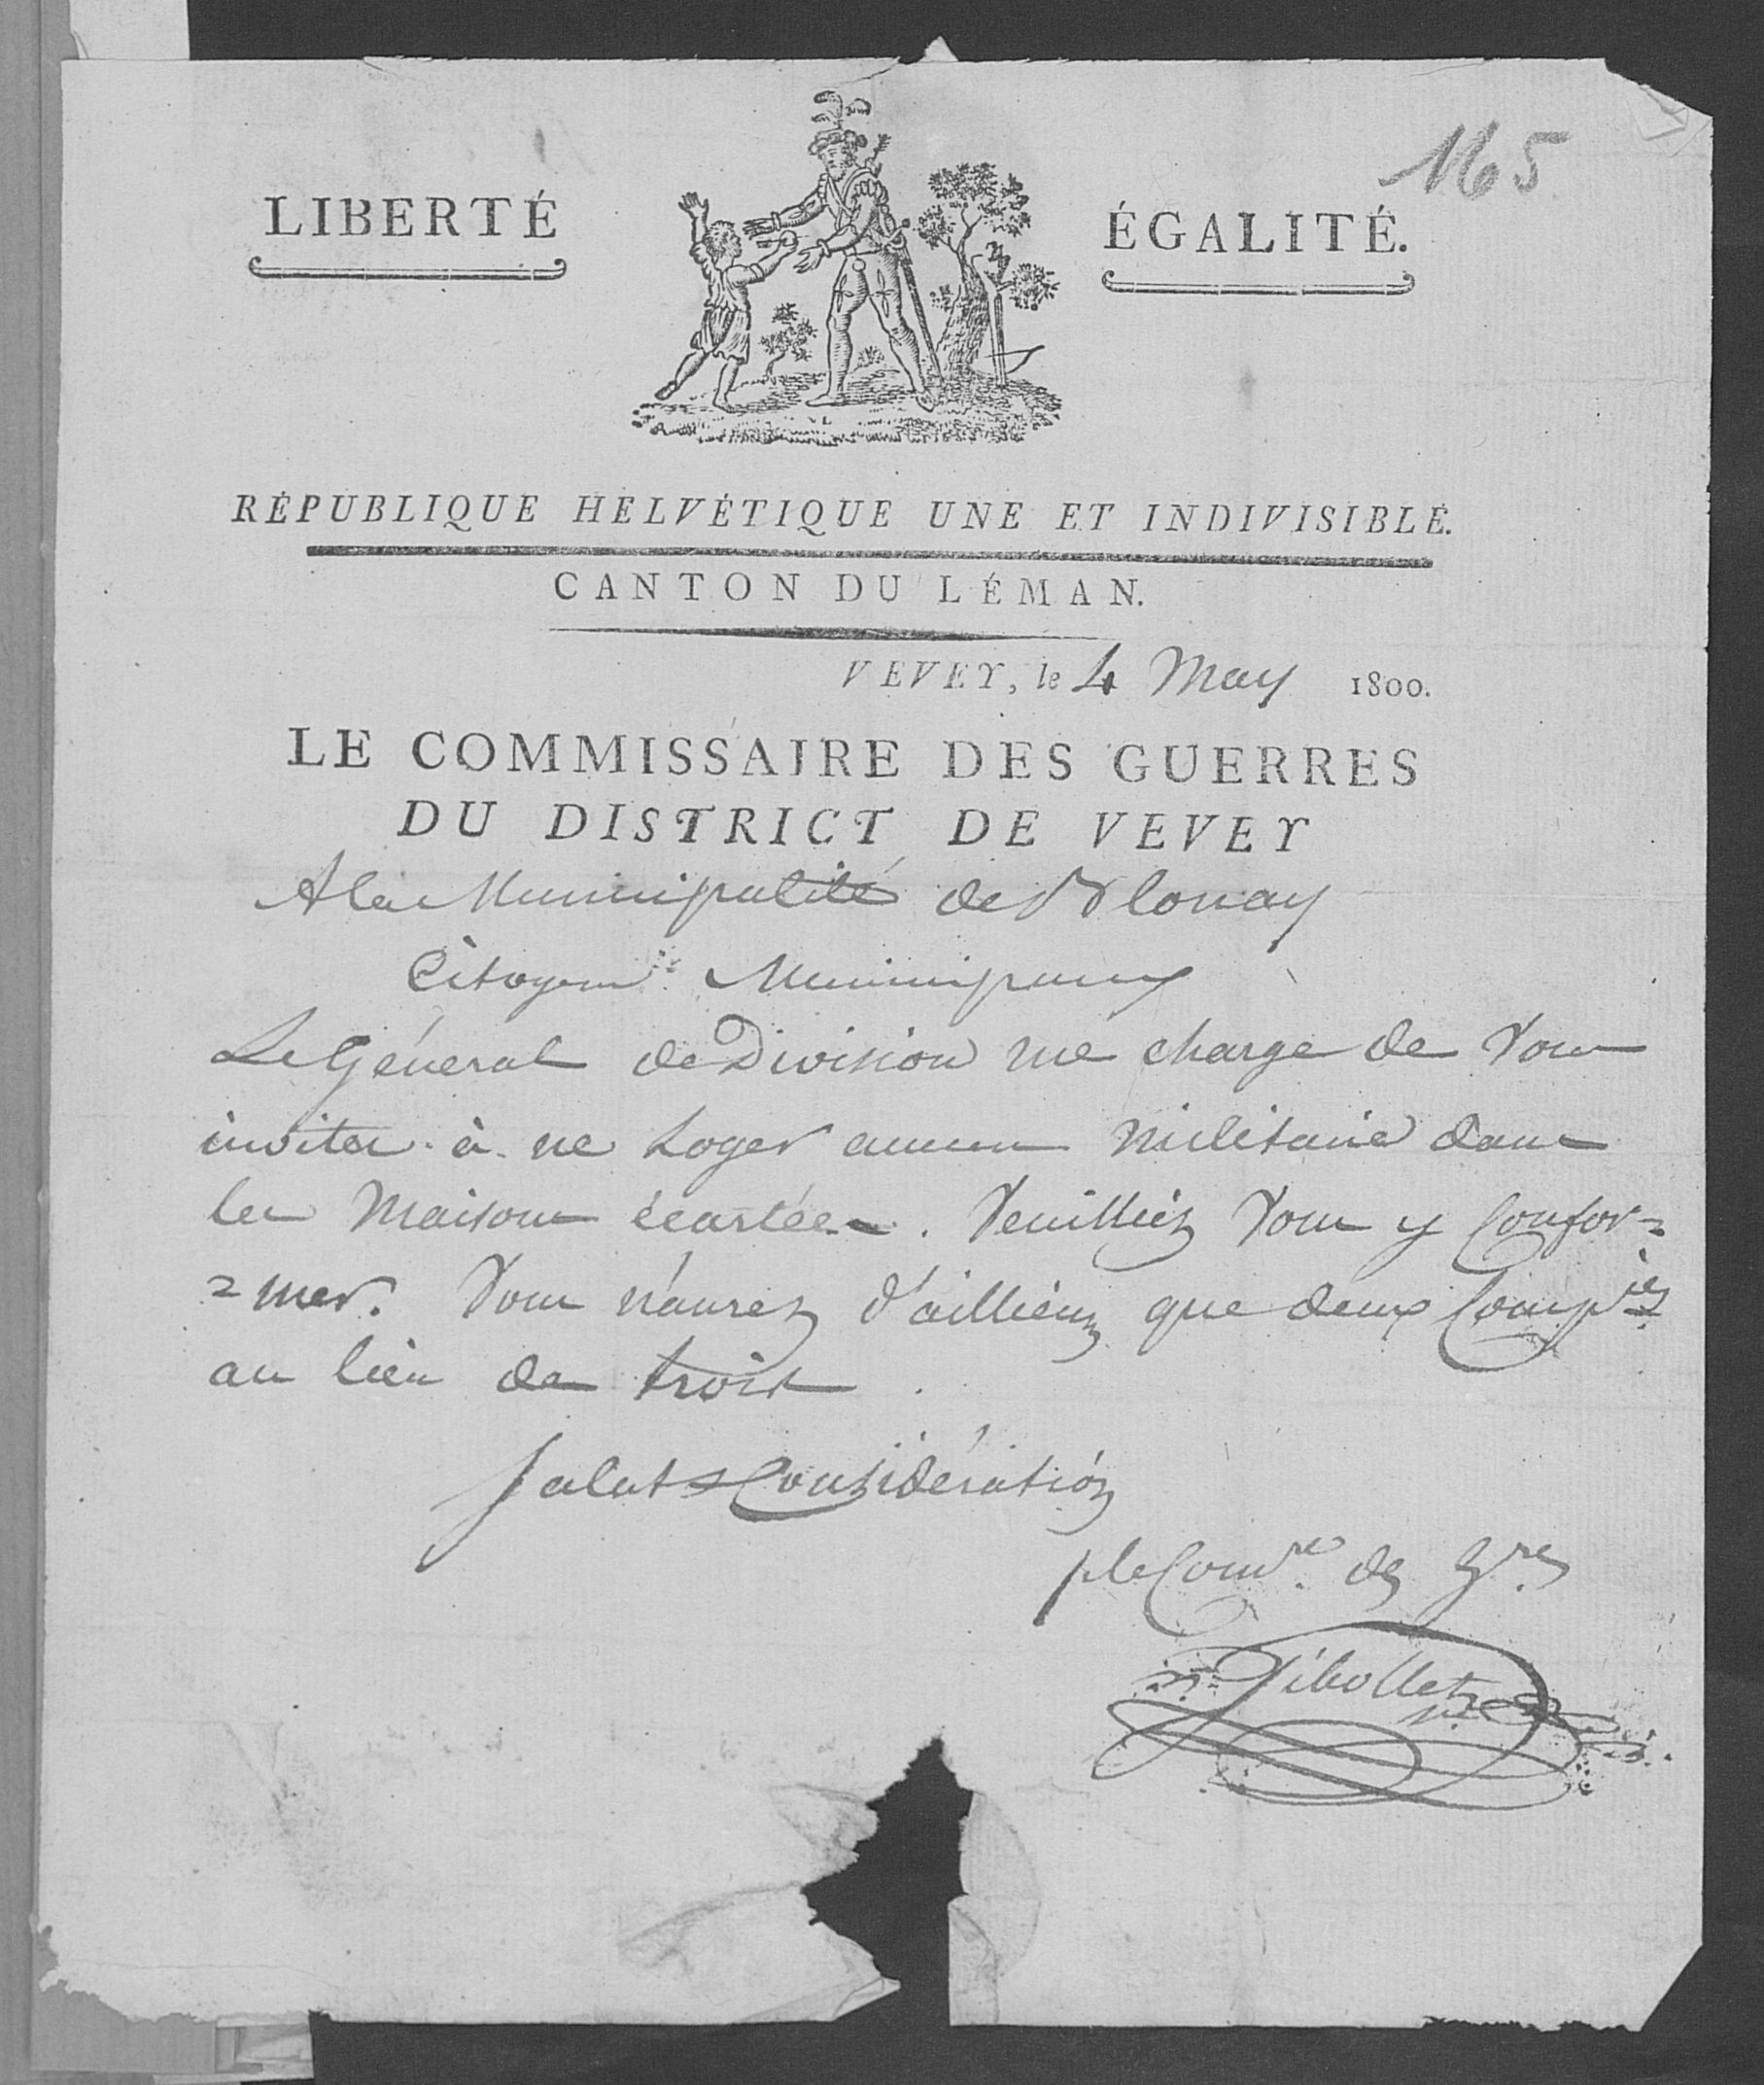 165
LIBERTÉ ÉGALITÉ.
RÉPUBLIQUE HELVÉTIQUE UNE ET INDIVISIBLE.
CANTON DU LÉMAN.
VEVEY, le 4 May 1800.
LE COMMISSAIRE DES GUERRES
DU DISTRICT DE VEVEY
A la Municipalité de Blonay
Citoyens Municipaux
Le Général de Division me charge de Vous
inviter à ne Loger aucun militaire dans
les Maisons écartées. Veuilliéz Vous y Confor=
=mer. Vous n'aurez d'ailliéurs que deux Comp.ies
au lieu de trois.
Salut & Considération
p le Com.re des G.res